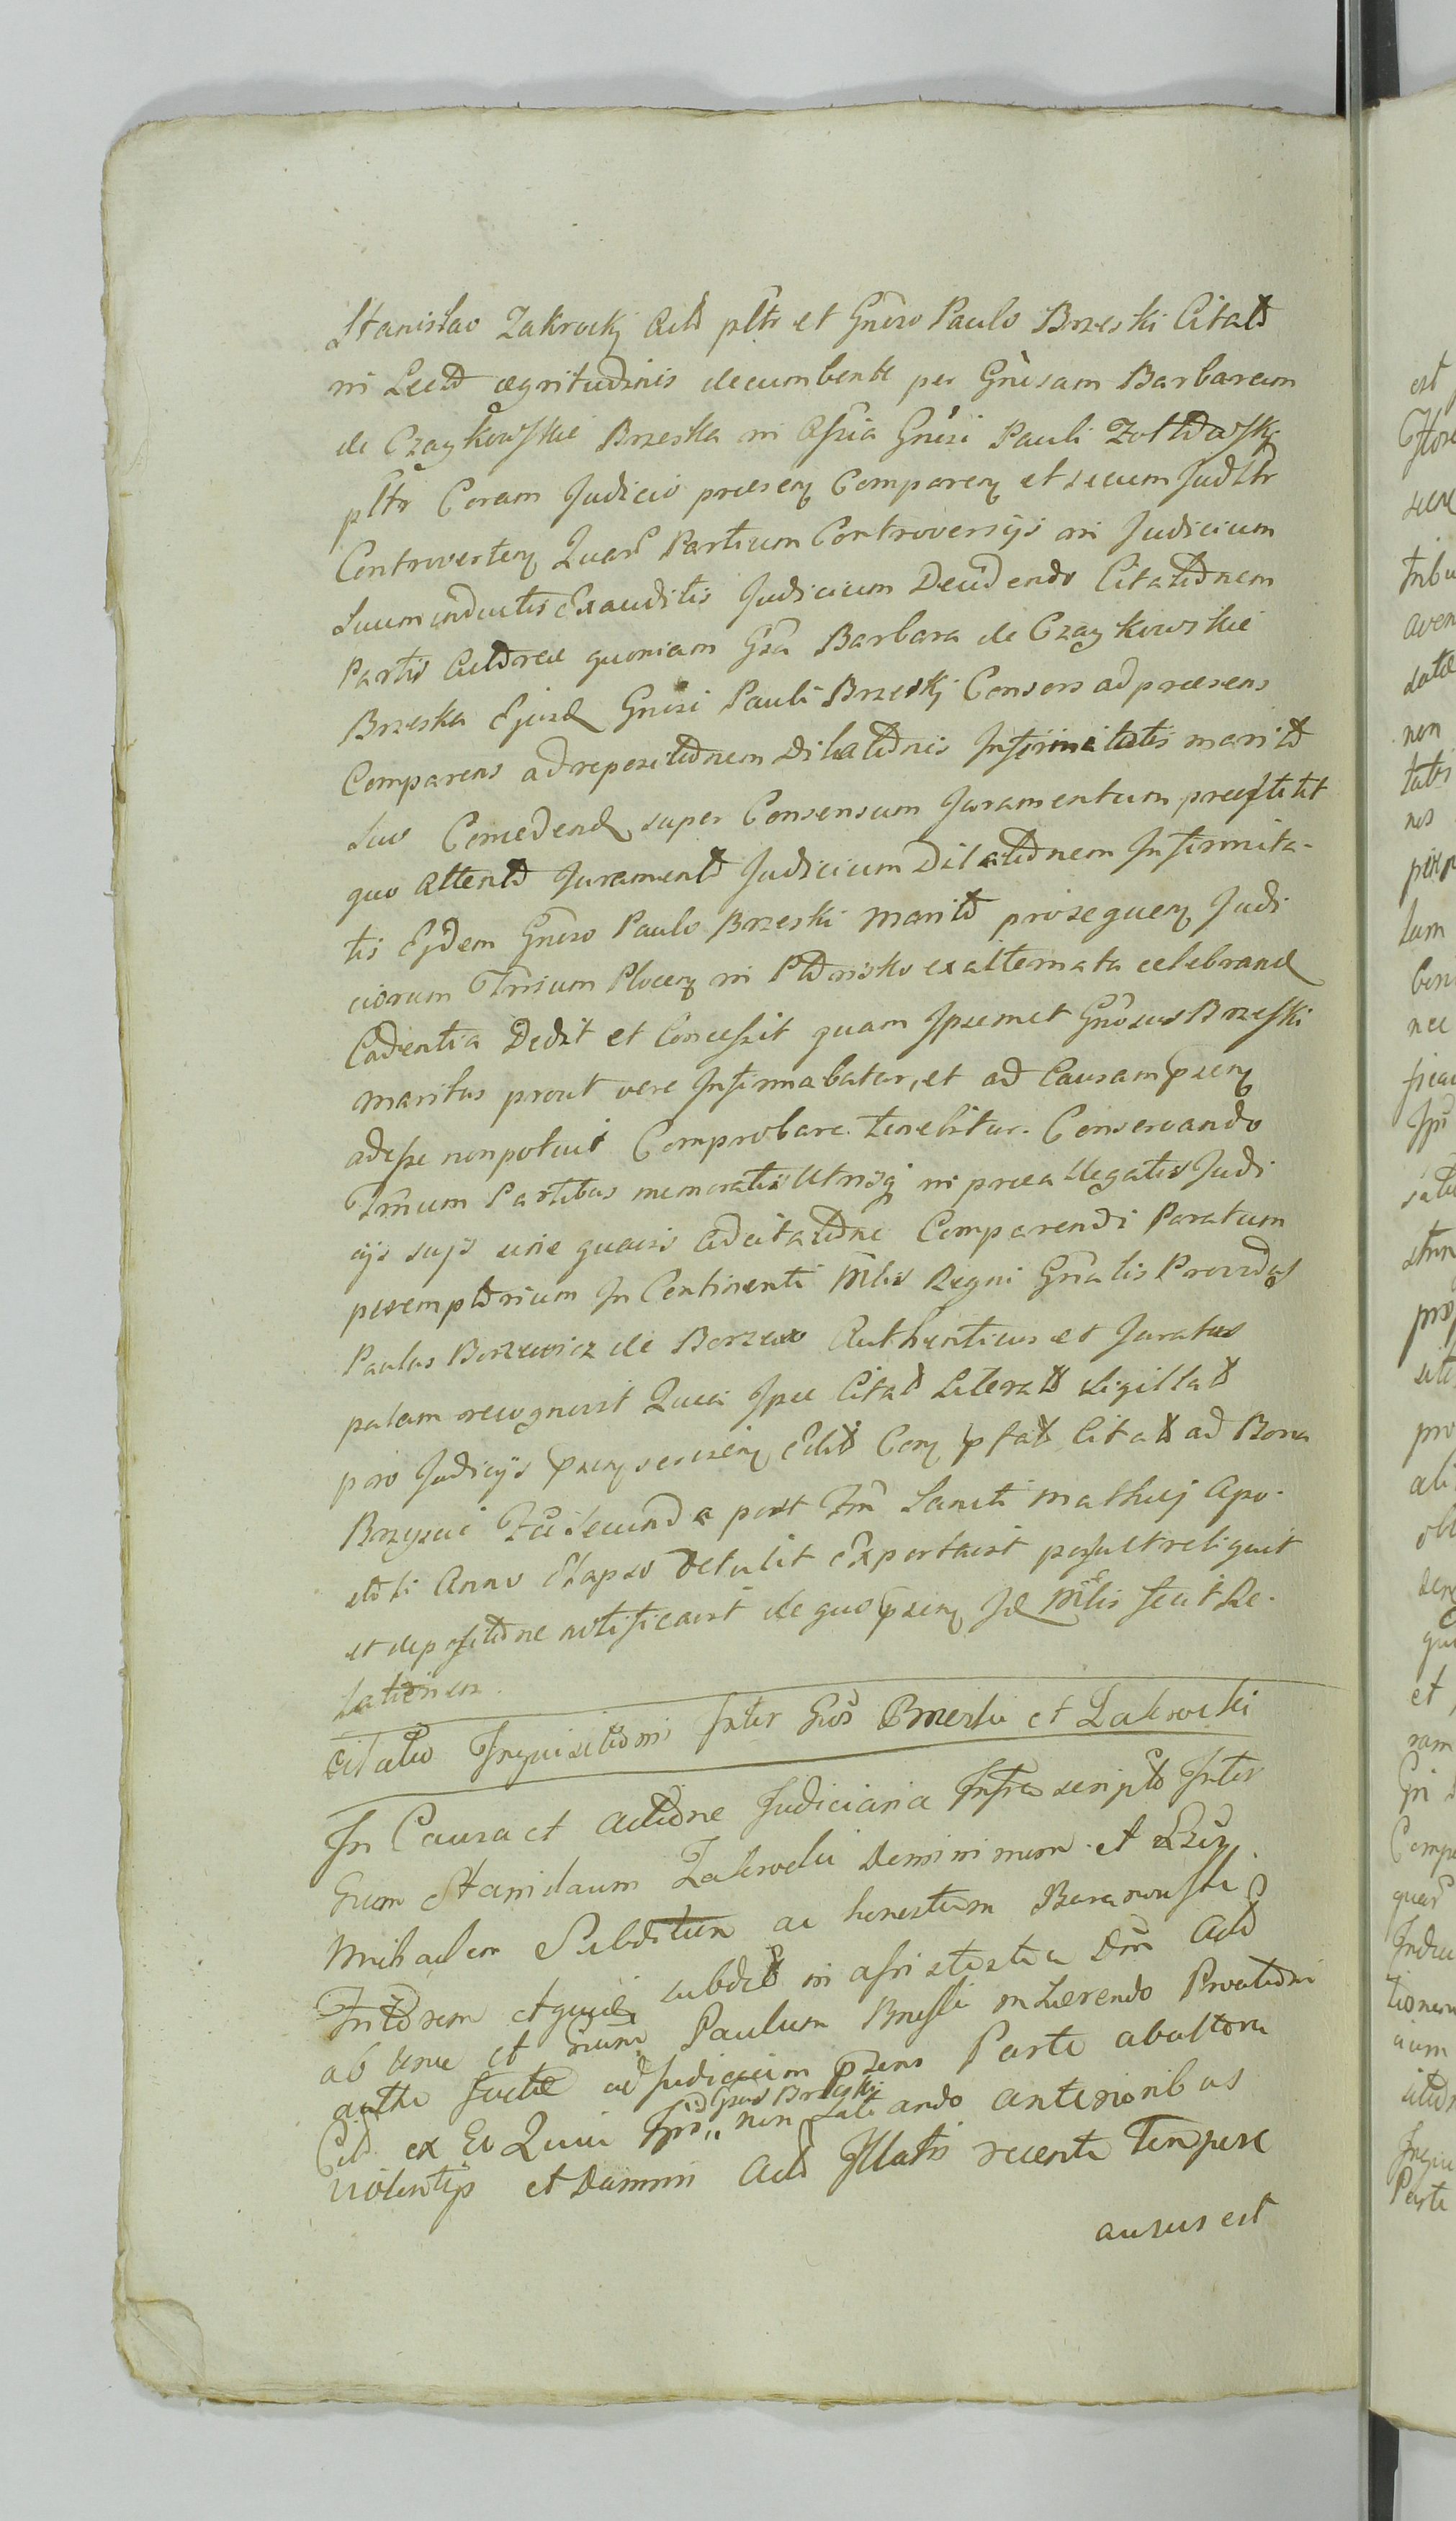 Stanislao Zakrocki Act̃o pltr et Gnoso Paulo Brzeski Citat̃o
in Lect̃o ægritudinis decumbente per Gnosam Barbaram
de Czaykowskie Brzeska in Assia Gnosi Pauli Zoltowskj
pltr Coram Judicio præsenꝫ Comparenꝫ et secum Judltr
Controvertenꝫ Quarũ Partium Controversijs in Judicium
Suum inductis Exauditis Judicium Decidendo Citationem
Partis Actoreæ quoniam Gsa Barbara de Czaykowskie
Brzeska Ejusd Gnosi Pauli Brzeskj Consors ad præsens
Comparens ad repositionem Dilationis Infirmitatis marito
Suo Concedend super Consensum Juramentum præstitit
quo attento Juramento Judicium Dilationem Infirmita-
tis Eidem Gnoso Paulo Brzeski Marito prosequenꝫ Judi
ciorum Trrium Plocenꝫ in Plonsko exalternata celebrand
Cadentia Dedit et Concessit quam Ipsemet Gnosus Brzeski
maritus prout vere Infirmabatur, et ad Causam psenꝫ
adesse non potuit Comprobare tenebitur. Conservando
Trmum Partibus memoratis Utrisqꝫ in præallegatis Judi
cijs sujs sine quavis adcitatione Comparendi Paratum
peremptorium In Continenti Mlis Regni Gnalis Providus
Paulus Borzewicz de Borzewo Authenticus et Juratus
palam recognovit Quia Ipse Citat̃o Literat̃o sigillat̃o
pro Judicijs psenꝫ Edit̃o Conꝫ pfat̃o Citat̃o ad Bona
Brzysui Fã Secunda post Fm Sancti Mathæj Apo-
stoli Anno Elapso Detulit Exportavit posuit reliquit
et depositione notificavit de quo psenꝫ Id Mlis fecit Re-
lationem.
Citatio Inquisitionis Inter Gsos Brzeski et Zakrocki
In Causa et actione Judiciaria Infrascripto Inter
Gsum Stanislaum Zakrocki Dominimum et
Michaelem Subditum ac honestum Baranowski
subdit̃o in assistentia Dni Act̃o
ab una et Gsum Paulum Brzeski inhærendo Protestationi
facte ad Judicium psens Parte ab altera
Cit̃o ex Eo Quia Ipse id Gsus Brzeskj non Satiando anterioribus
violentijs et Damnis Act̃o Illatis recenti Tempore
ausus est